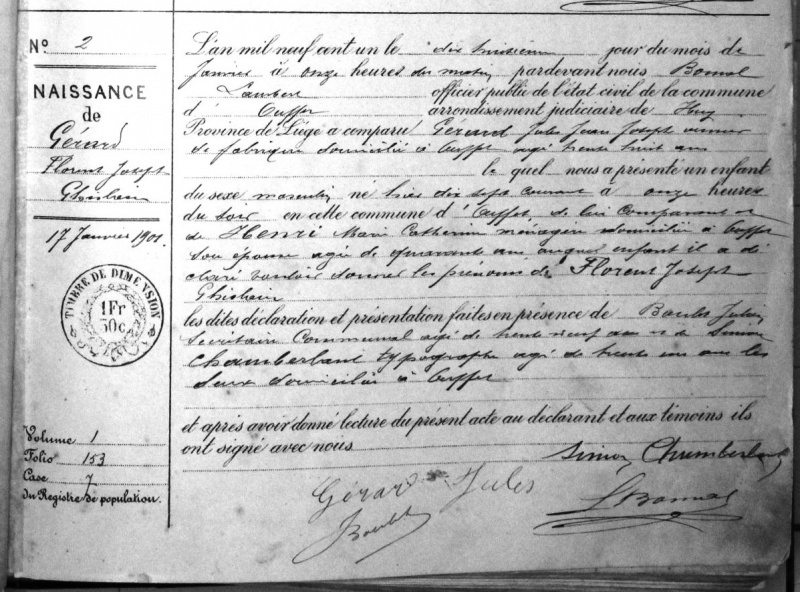 N° 2
NAISSANCE
de
Gérard
Florent Joseph
Ghislain
17 Janvier 1901.
TIMBRE DE DIMENSION
1 Fr
50 c
Volume 1
Folio 153
Case 7
du Registre de population.
L'an mil neuf cent un le dix huitième jour du mois de
Janvier à onze heures du matin, pardevant nous Bonmal
Lambert officier public de l'état civil de la commune
d' Ouffet arrondissement judiciaire de Huy
Province de Liége a comparu Gérard Jules Jean Joseph
de fabrique domicilié à Ouffet agé trente huit ans
le quel nous a présenté un enfant
du sexe masculin né hier dix sept courant à onze heures
du soir en cette commune d' Ouffet, de lui comparant et
de Henri Marie Catherine ménagère domiciliée à Ouffet
son épouse agée de quarante ans auquel enfant il a dé
claré vouloir donner les prénoms de Florent Joseph
Ghislain
les dites déclaration et présentation faites en présence de Boulet Julien,
Secrétaire Communal agé de trente neuf ans et de Simon
Chamberlant typographe agé de trente un ans les
deux domiciliés à Ouffet
et après avoir donné lecture du présent acte au déclarant et aux témoins ils
ont signé avec nous
Simon Chamberlant
Gérard Jules
LBonmal
Boulet